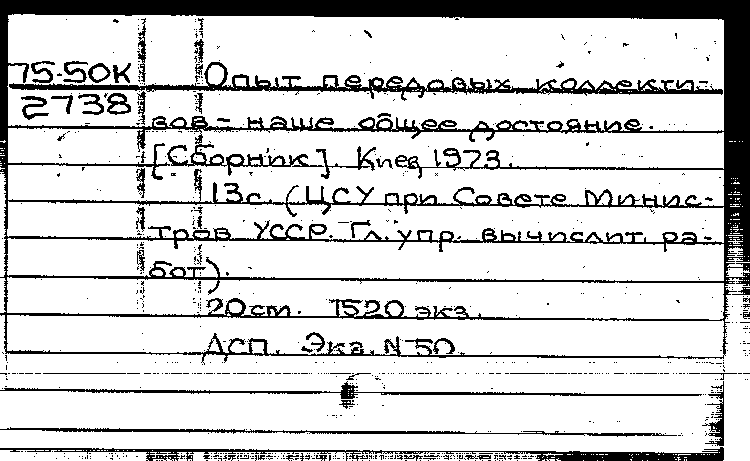 75-50К Опыт передовых коллекти-
2738
вов - наше общее достояние.
[Сборник]. Киев, 1973.
13с. (ЦСУ при Совете Минис-
тров УССР. Гл. упр. вычислит. ра-
бот).
20 см. 1520 экз.
ДСП. Экз. N 50.